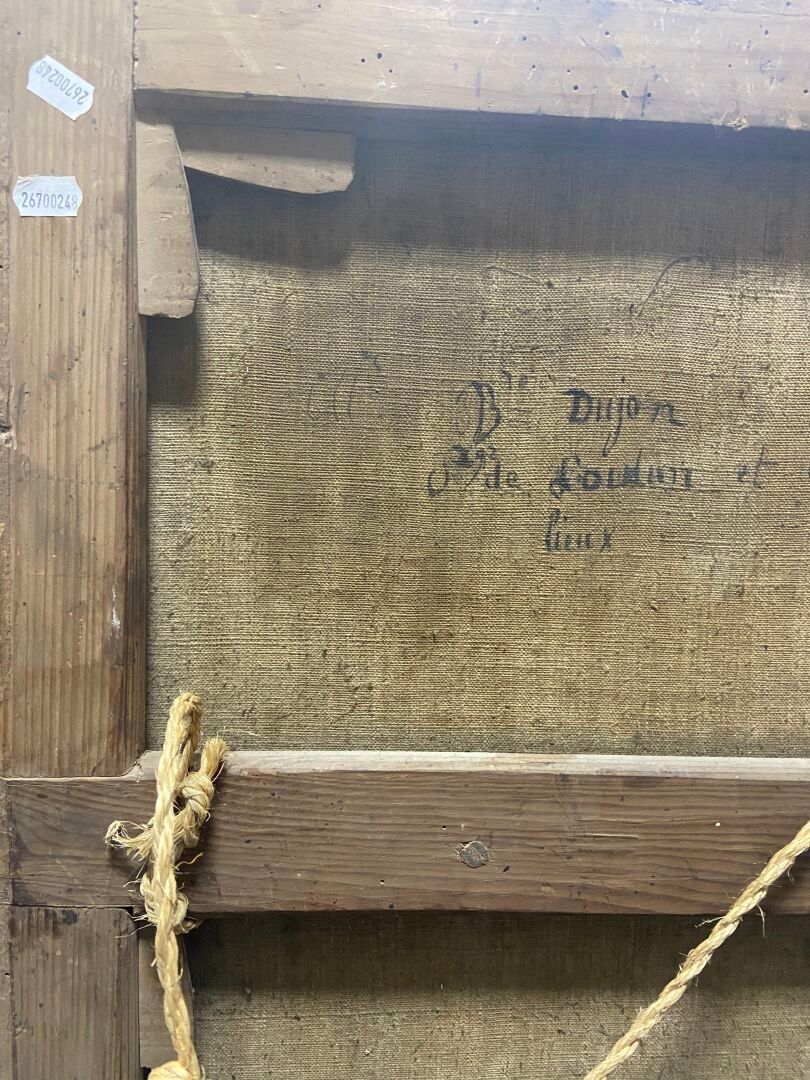 26700248
26700248
B Dujon
de Loudun et
lieux